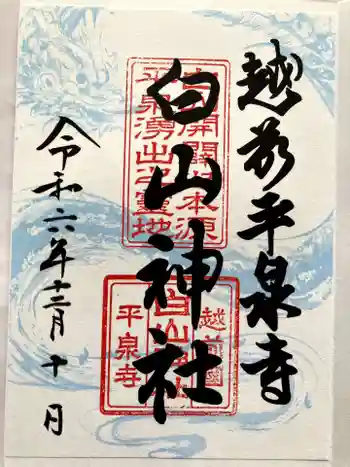 越前平泉寺
白山神社
令和六年十二月十日
開闢 本源
平泉湧出之靈地
越前國
白山
平泉寺